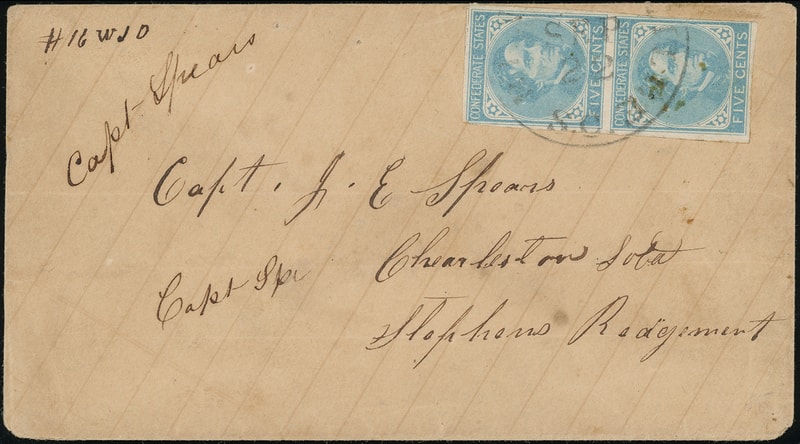 #16 WJO
Capt Spears
CONFEDERATE STATES
FIVE CENTS
CONFEDERATE STATES
FIVE CENTS
Capt. J. E Spears
Capt Spe
Charleston
Stephens Redgement